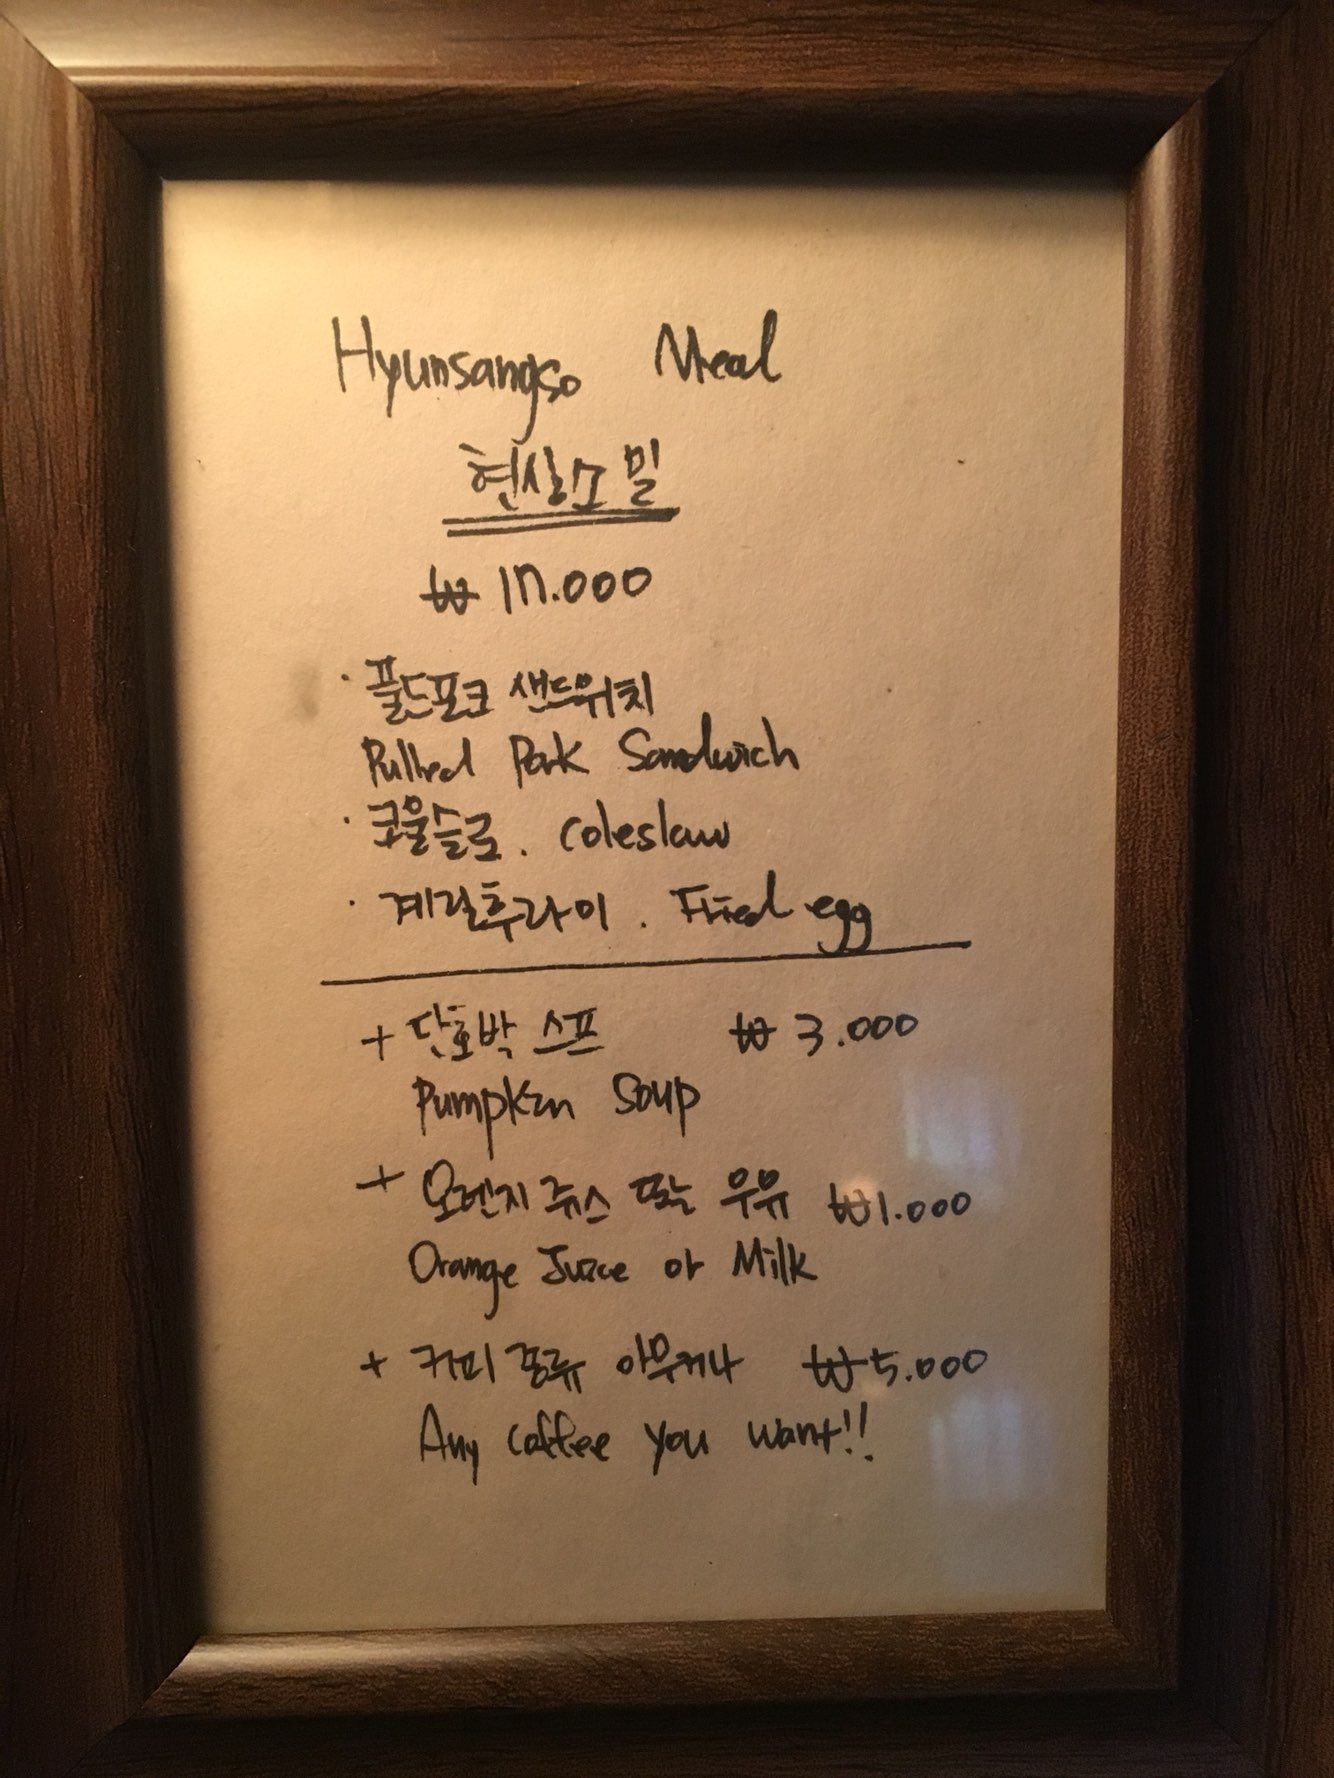 Hyunsangso Meal
현상소 밀
₩ 17.000
· 풀드포크 샌드위치
Pulled Pork Sandwich
· 코울슬로. Coleslaw
· 계란후라이. Fried egg
+ 단호박 스프 ₩ 3.000
Pumpkin Soup
+ 오렌지 쥬스 또는 우유 ₩1.000
Orange Juice or Milk
+ 커피 종류 아무거나 ₩5.000
Any Coffee you want!!